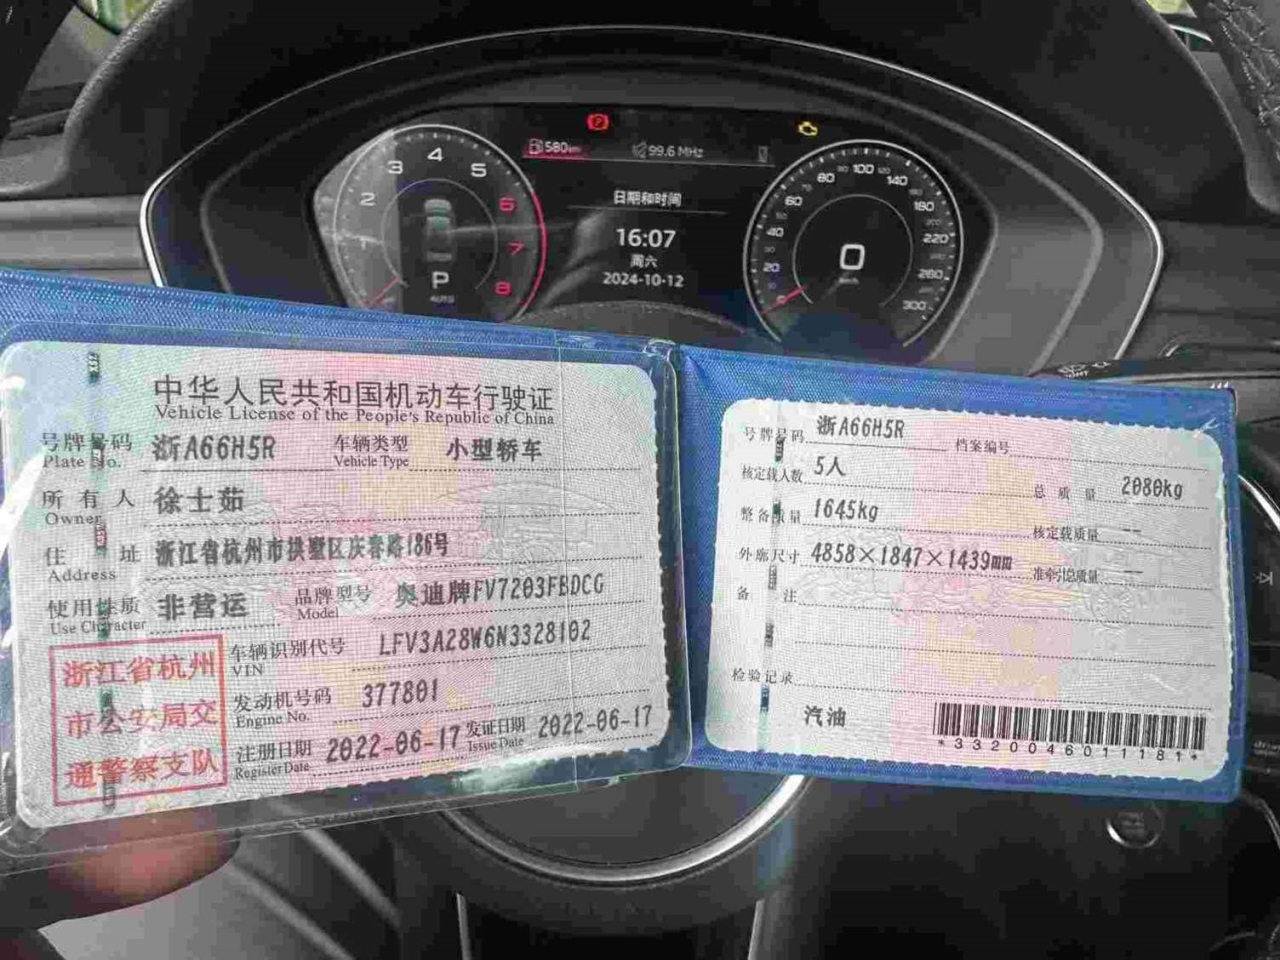 580km
99.6 MHz
日期和时间
16:07
周六
2024-10-12
2
3
4
5
6
7
8
P
AUTO
0
km/h
20
40
60
80
100
120
140
180
220
260
300
中华人民共和国机动车行驶证
Vehicle License of the People's Republic of China
号牌号码 浙A66H5R 车辆类型 小型轿车
Plate No. Vehicle Type
所有人 徐士茹
Owner
住址 浙江省杭州市拱墅区庆春路186号
Address
使用性质 非营运 品牌型号 奥迪牌FV7203FBDCG
Use Character Model
浙江省杭州
市公安局交
通警察支队
车辆识别代号 LFV3A28W6N3328102
VIN
发动机号码 377801
Engine No.
注册日期 2022-06-17 发证日期 2022-06-17
Register Date Issue Date
号牌号码 浙A66H5R 档案编号
核定载人数 5人 总质量 2080kg
整备质量 1645kg 核定载质量 --
外廓尺寸 4858×1847×1439mm 准牵引总质量 --
备注
检验记录
汽油
*3320046011181*